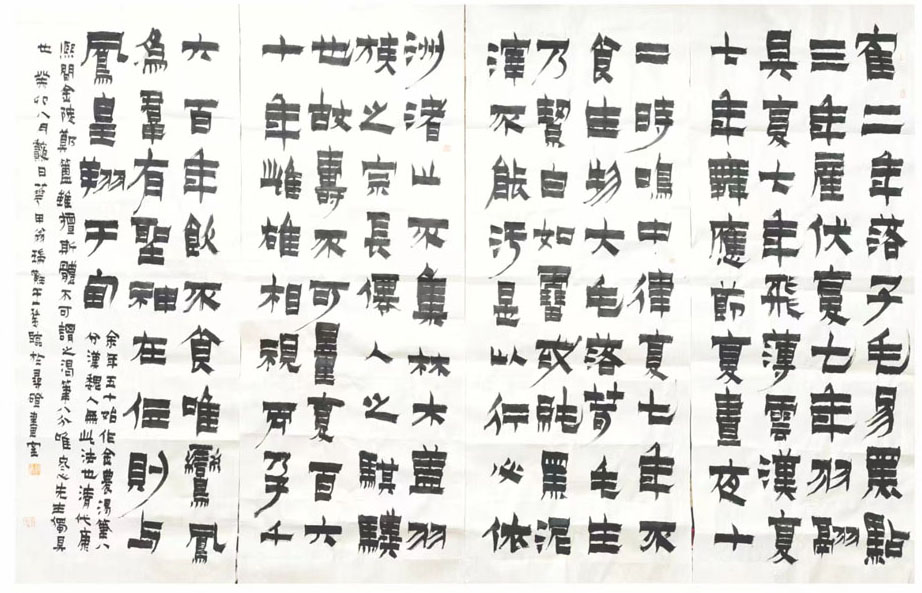 寉二年落子毛易黑點
三年產伏夏七年羽翮
具夏七年飛薄雲漢夏
七年舞應節夏晝夜十
二時鳴中律夏七年不
食生物大毛落茸毛生
乃絜白如雪或純黑泥
滓不能污是以行必依
洲渚止不集林木蓋羽
族之宗長僊人之騏驥
也故壽不可量夏百六
十年雌雄相視而孕千
六百年飲不食唯鸞鳳
為羣有聖神在位則与
鳳皇翔于甸
余年五十始作金農渴筆八
分漢魏人無此法也清代康
熙間金陵鄭簠雖擅斯體不可謂之渴筆八分唯冬心先生獨具
也 癸卯八月 日 甲翁 臨於 畫室